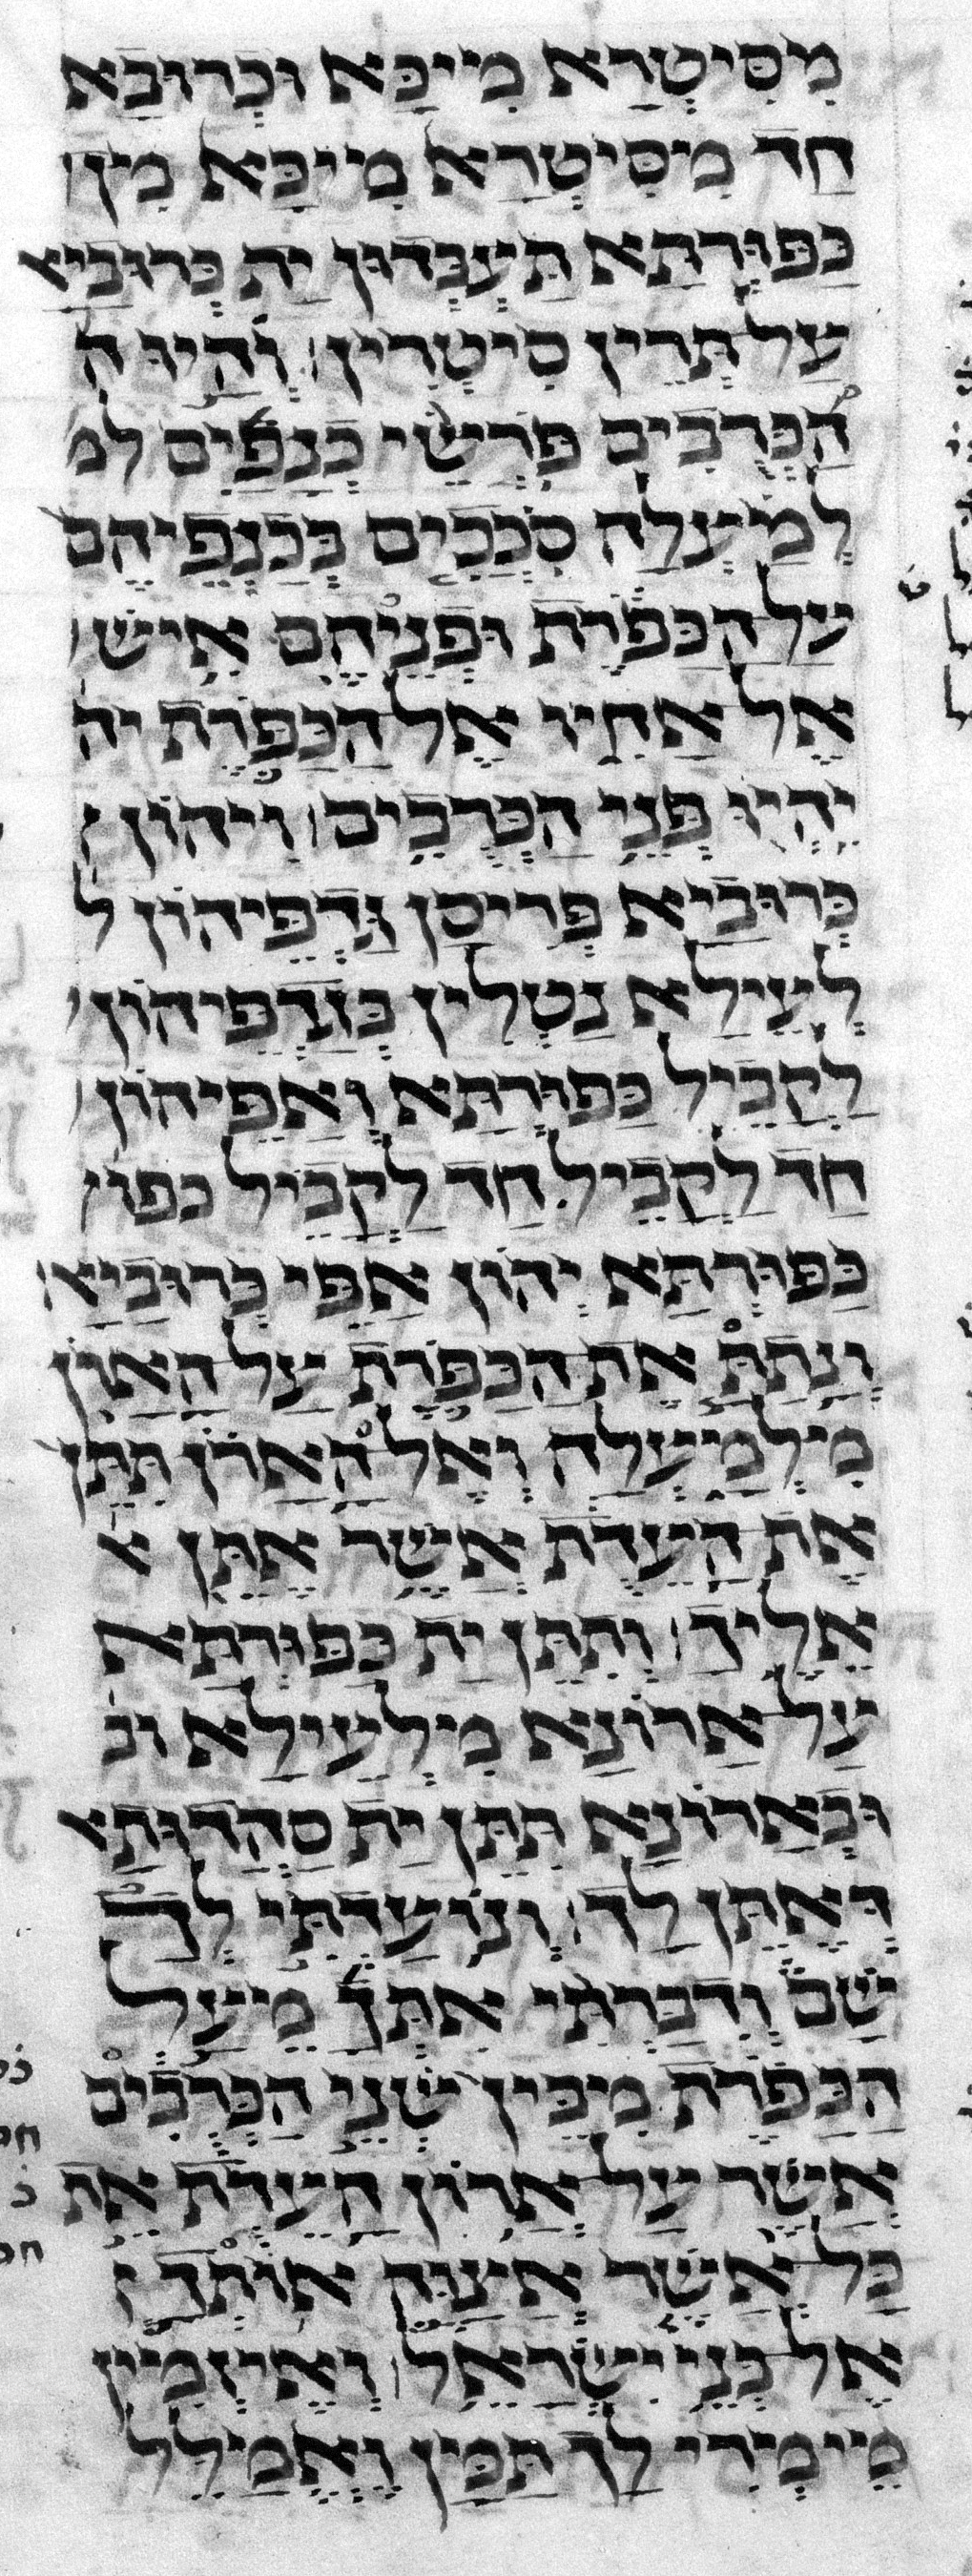 מִסִיטְרָא מִיכָּא וּכְרוּבָא
חַד מִסִיטְרָא מִיכָּא מִן
כַּפּוּרְתָּא תַּעְבְּדוּן יָת כְּרוּבַיָּא
עַל תְּרֵין סִיטְרִין וְהָיוּ ה
הַכְּרֻבִים פֹּרְשֵׂי כְנָפַיִם למ
לְמַעְלָה סֹכְכִים בְּכַנְפֵיהֶם
עַל הַכַּפֹּרֶת וּפְנֵיהֶם אִישׁ
אֶל אָחִיו אֶל הַכַּפֹּרֶת יה
יִהְיוּ פְּנֵי הַכְּרֻבִים וִיהוֹן
כְּרוּבַיָּא פְּרִיסָן גַּדְפֵּיהוֹן ל
לְעֵילָא נַטְלִין בְּגַדְפֵּיהוֹן
לָקֳבֵיל כַּפּוּרְתָּא וְאַפֵּיהוֹן
חַד לָקֳבֵיל חַד לָקֳבֵיל כפו
כַּפּוּרְתָּא יְהוֹן אַפֵּי כְּרוּבַיָּא
וְנָתַתָּ אֶת הַכַּפֹּרֶת עַל הָאָרֹן
מִלְמָעְלָה וְאֶל הָאָרֹן תִּתֵּן
אֶת הָעֵדֻת אֲשֶׁר אֶתֵּן א
אֵלֶיךָ וְתִתֵּן יָת כַּפּוּרְתָּא
עַל אֲרוֹנָא מִלְעֵילָא וב
וּבַאֲרוֹנָא תִּתֵּן יָת סָהֲדוּתָא
דְּאֶתֵּן לָךְ וְנוֹעַדְתִּי לְךָ
שָׁם וְדִבַּרְתִּי אִתְּךָ מֵעַל
הַכַּפֹּרֶת מִבֵּין שְׁנֵי הַכְּרֻבִים
אֲשֶׁר עַל אֲרוֹן הָעֵדֻת אֵת
כָּל אֲשֶׁר אֲצַוֶּה אוֹתְךָ
אֶל בְּנֵי יִשְׂרָאֵל וַאֲיזַמֵּין
מֵימְרִי לָךְ תַּמָּן וַאֲמַלֵּל